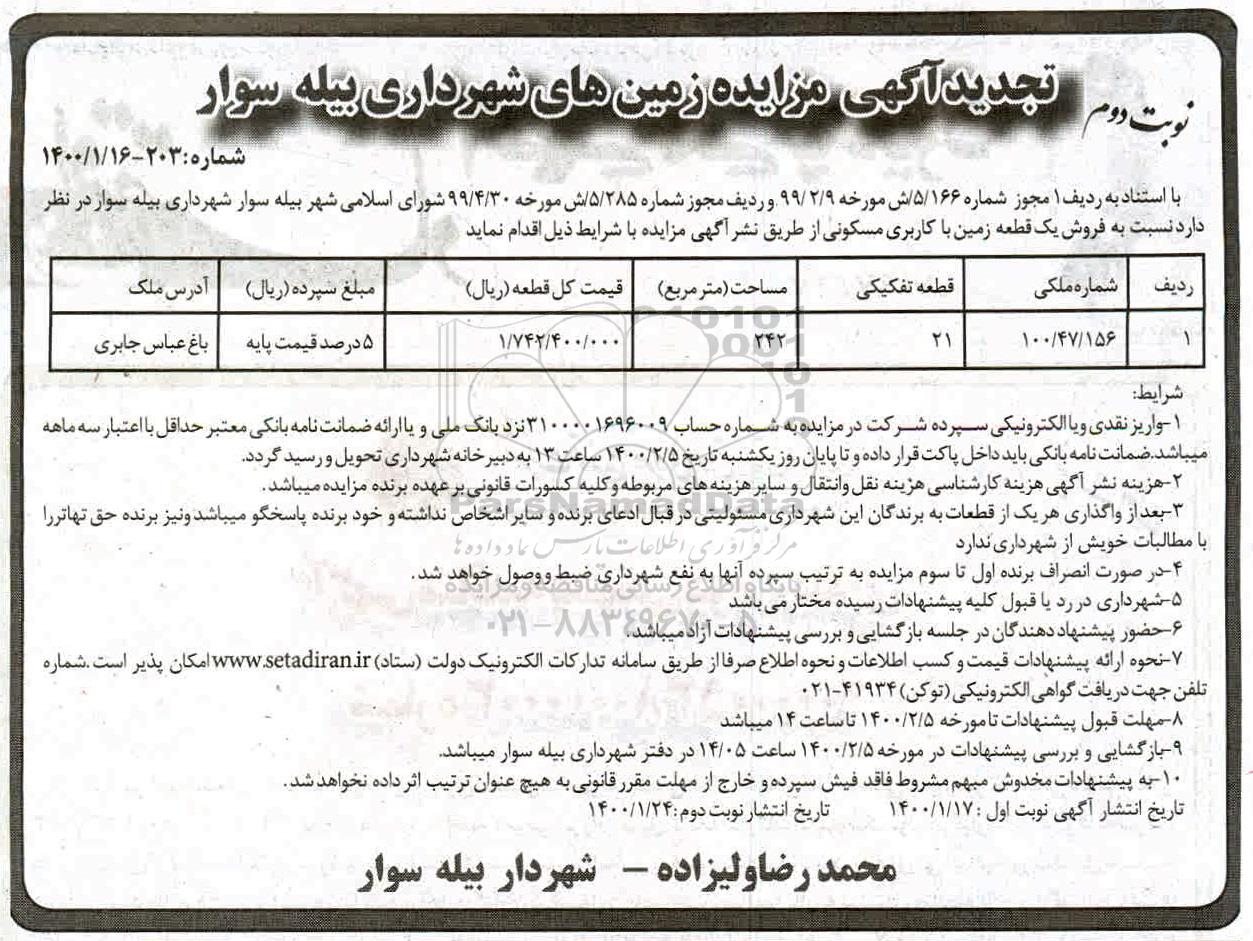 تجدیدآگهی مزایده زمین های شهرداری بیله سوار
نوبت دوم
شماره:۲۰۳-۱۴۰۰/۱/۱۶
با استناد به ردیف۱ مجوز شماره ۵/۱۶۶/ش مورخه ۹۹/۲/۹ و ردیف مجوز شماره ۵/۲۸۵/ش مورخه ۹۹/۴/۳۰ شورای اسلامی شهر بیله سوار شهرداری بیله سوار در نظر
دارد نسبت به فروش یک قطعه زمین با کاربری مسکونی از طریق نشر آگهی مزایده با شرایط ذیل اقدام نماید
ردیف شماره ملکی قطعه تفکیکی مساحت(متر مربع) قیمت کل قطعه (ریال) مبلغ سپرده (ریال) آدرس ملک
۱ ۱۰۰/۴۷/۱۵۶ ۲۱ ۲۴۲ ۱/۷۴۲/۴۰۰/۰۰۰ ۵ درصد قیمت پایه باغ عباس جابری
شرایط:
۱-واریز نقدی ویا الکترونیکی سپرده شرکت در مزایده به شماره حساب ۳۱۰۰۰۰۱۶۹۶۰۰۹ نزد بانک ملی و یا ارائه ضمانت نامه بانکی معتبر حداقل با اعتبار سه ماهه
میباشد.ضمانت نامه بانکی باید داخل پاکت قرار داده و تا پایان روز یکشنبه تاریخ ۱۴۰۰/۲/۵ ساعت ۱۳ به دبیرخانه شهرداری تحویل و رسید گردد.
۲-هزینه نشر آگهی هزینه کارشناسی هزینه نقل وانتقال و سایر هزینه های مربوطه وکلیه کسورات قانونی بر عهده برنده مزایده میباشد.
۳-بعد از واگذاری هر یک از قطعات به برندگان این شهرداری مسئولیتی در قبال ادعای برنده و سایر اشخاص نداشته و خود برنده پاسخگو میباشد ونیز برنده حق تهاتررا
با مطالبات خویش از شهرداری ندارد
۴-در صورت انصراف برنده اول تا سوم مزایده به ترتیب سپرده آنها به نفع شهرداری ضبط و وصول خواهد شد.
۵-شهرداری در رد یا قبول کلیه پیشنهادات رسیده مختار می باشد
۶-حضور پیشنهاد دهندگان در جلسه بازگشایی و بررسی پیشنهادات آزاد میباشد.
۷-نحوه ارائه پیشنهادات قیمت و کسب اطلاعات و نحوه اطلاع صرفا از طریق سامانه تدارکات الکترونیک دولت (ستاد) www.setadiran.ir امکان پذیر است.شماره
تلفن جهت دریافت گواهی الکترونیکی (توکن) ۴۱۹۳۴-۰۲۱
۸-مهلت قبول پیشنهادات تا مورخه ۱۴۰۰/۲/۵ تا ساعت ۱۴ میباشد
۹-بازگشایی و بررسی پیشنهادات در مورخه ۱۴۰۰/۲/۵ ساعت ۱۴/۰۵ در دفتر شهرداری بیله سوار میباشد.
۱۰-به پیشنهادات مخدوش مبهم مشروط فاقد فیش سپرده و خارج از مهلت مقرر قانونی به هیچ عنوان ترتیب اثر داده نخواهد شد.
تاریخ انتشار آگهی نوبت اول :۱۴۰۰/۱/۱۷ تاریخ انتشار نوبت دوم:۱۴۰۰/۱/۲۴
محمد رضا ولیزاده – شهردار بیله سوار
ParsNamadData
مرکز فرآوری اطلاعات پارس نماد داده ها
پایگاه اطلاع رسانی مناقصه و مزایده